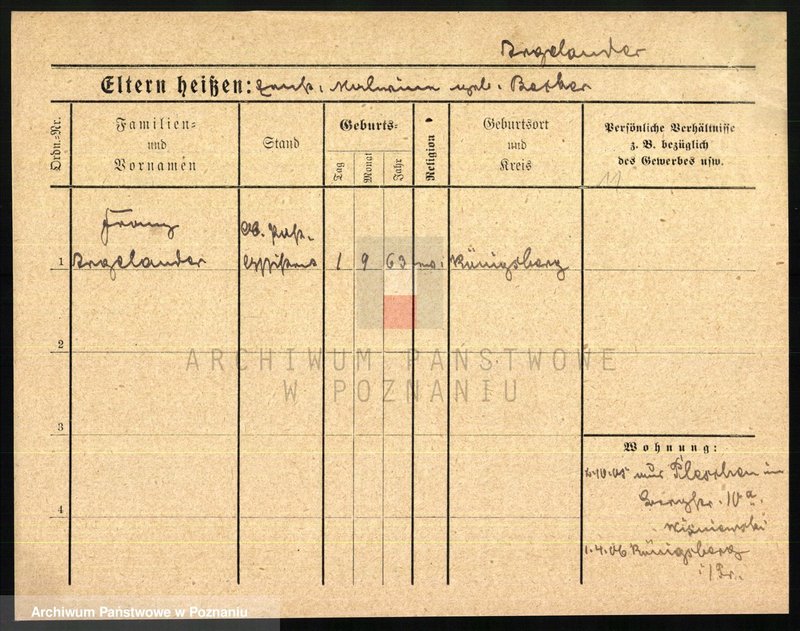 Argelander
Eltern heißen: Ernst, Malwine geb. Becker
Ordn.-Nr.
Familien-
und
Vornamen
Stand
Geburts-
Tag
Monat
Jahr
Religion
Geburtsort
und
Kreis
Persönliche Verhältnisse
z. B. bezüglich
des Gewerbes usw.
11
Franz
Ob. Post-
1 Argelander Assistent 1 9 63 ev. Königsberg
2
3
4
ARCHIWUM PAŃSTWOWE
W POZNANIU
Wohnung:
10.05 aus Pleschen in
10a.
Wiśniewski
1.4.06 Königsberg
i/Pr.
Archiwum Państwowe w Poznaniu